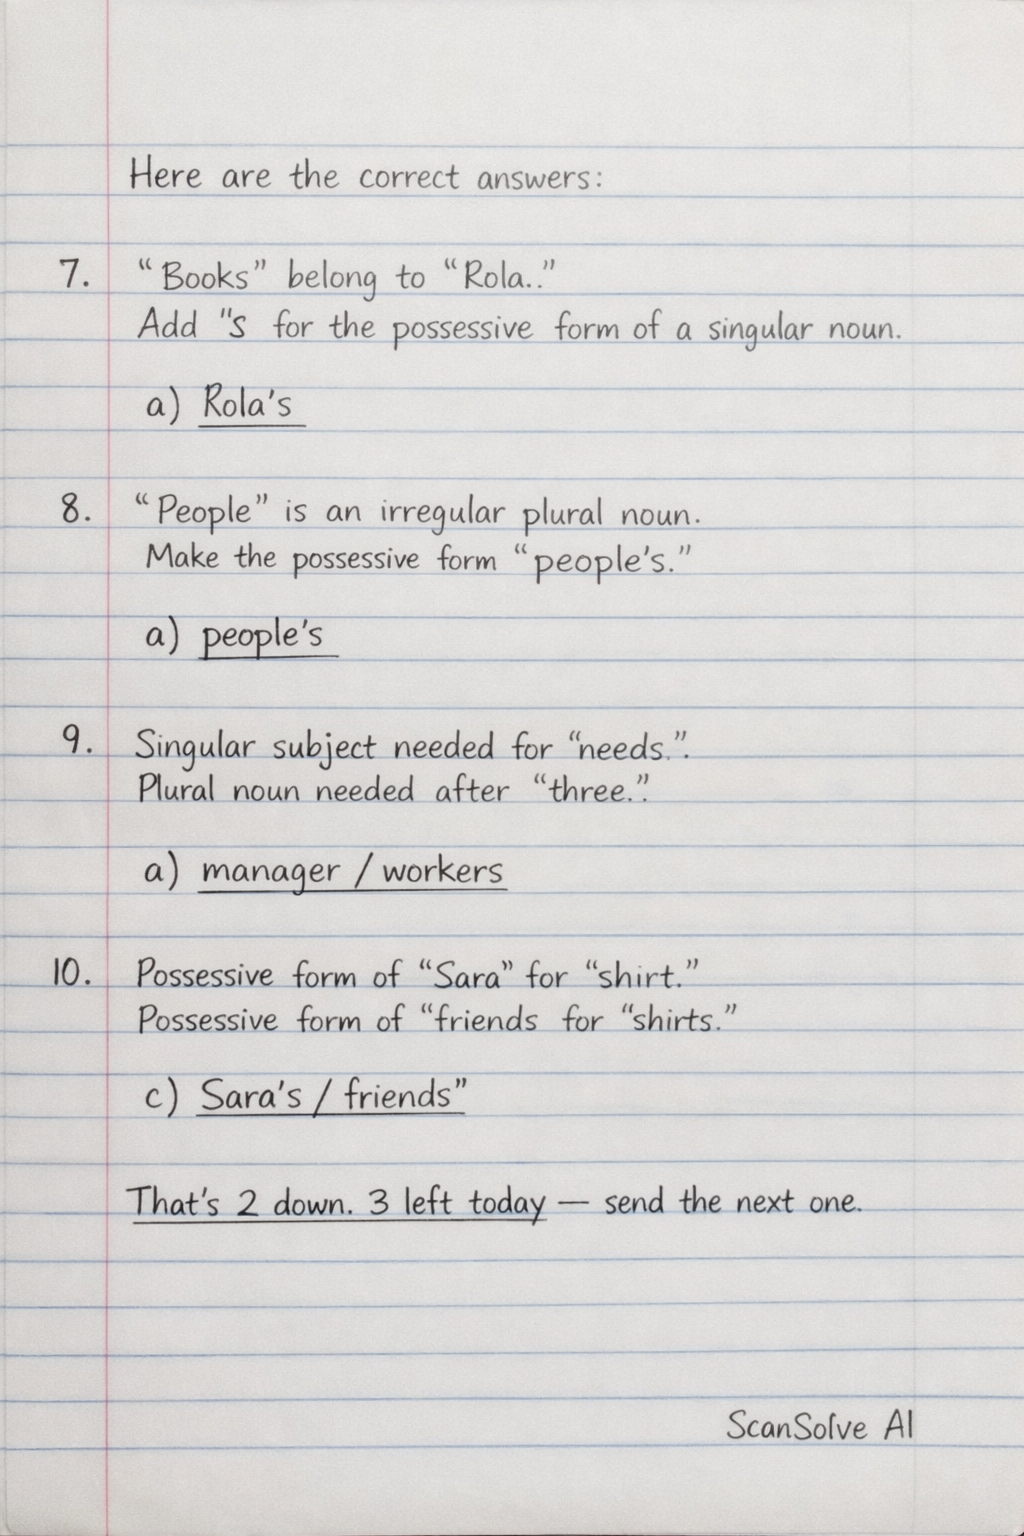 Here are the correct answers:
7. “Books” belong to “Rola..”
Add "s for the possessive form of a singular noun.
a) Rola's
8. “People” is an irregular plural noun.
Make the possessive form “people's.”
a) people's
9. Singular subject needed for “needs.”.
Plural noun needed after “three.”.
a) manager / workers
10. Possessive form of “Sara” for “shirt.”
Possessive form of “friends for “shirts.”
c) Sara's / friends”
That's 2 down. 3 left today — send the next one.
ScanSolve AI